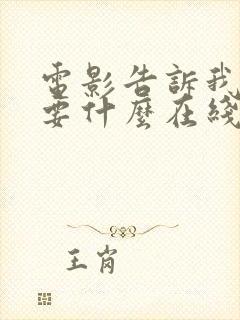 電影告訴我
要什麼在綫
王崗